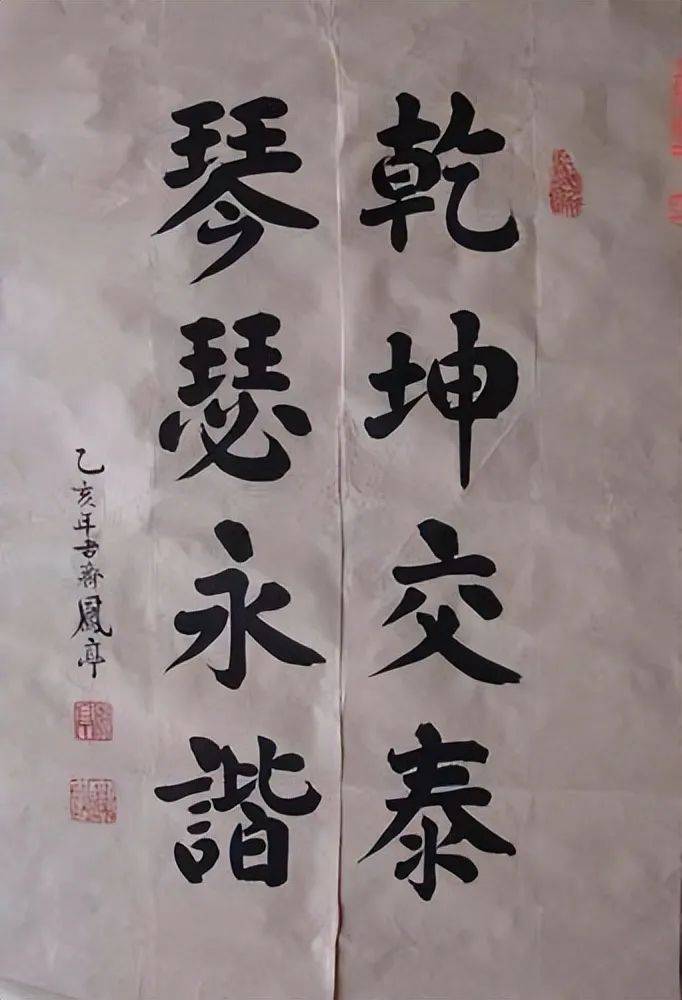 乾坤交泰
琴瑟永谐
乙亥年古斋鳳亭